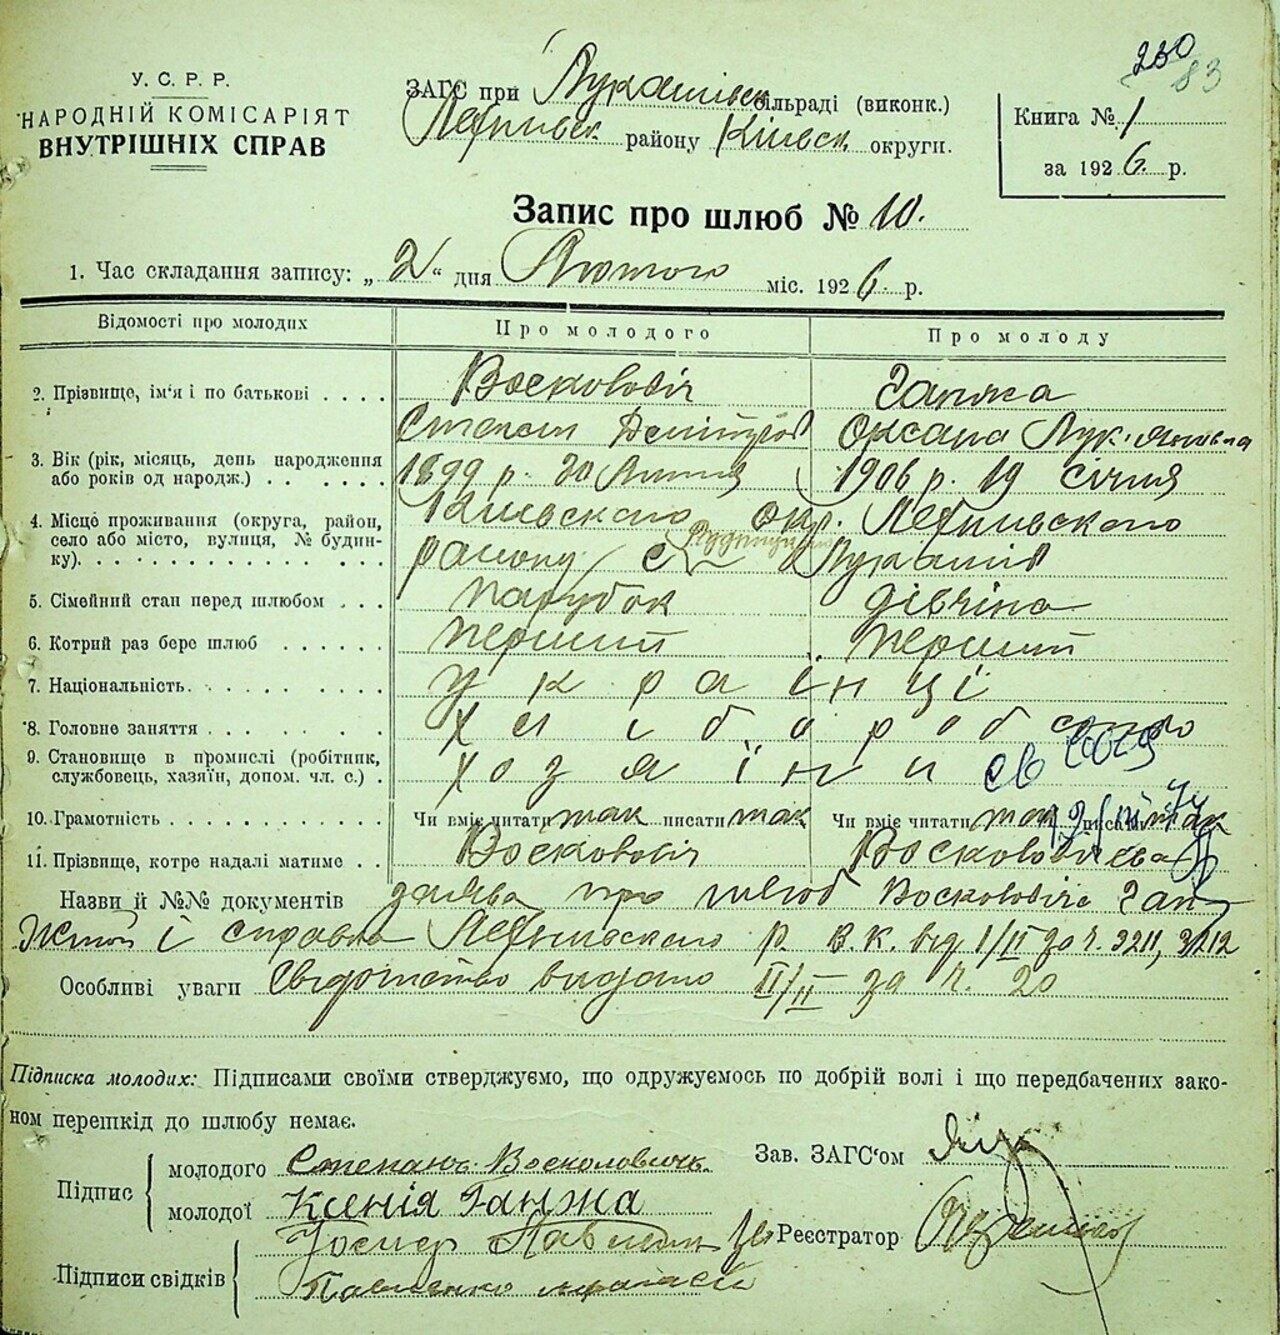 230
83
У. С. Р. Р.
НАРОДНІЙ КОМІСАРІЯТ
ВНУТРІШНІХ СПРАВ
ЗАГС при Лукашівск сільраді (виконк.)
району Київськ округи.
Книга № 1
за 1926 р.
Запис про шлюб № 10.
1. Час складання запису: „ 2 “ дня Лютого міс. 1926. р.
Відомості про молодих Про молодого Про молоду
2. Прізвище, ім'я і по батькові . . . . Восколовіч Ганжа
Степан Дмітров Оксана Лук'янівна
3. Вік (рік, місяць, день народження 1899 р. 20 Липня 1906 р. 19 січня
або років од народж.) . . . . . .
4. Місце проживання (округа, район, Київского окр.
село або місто, вулиця, № будин- району с. Лукашів
ку). . . . . . . . . . . . . .
5. Сімейний стан перед шлюбом . . . парубок дівчіна
6. Котрий раз бере шлюб . . . . . . перший перший
7. Національність. . . . . . . . . . українці
8. Головне заняття . . . . . . . . хлібороб
9. Становище в промислі (робітник, хозяїни
службовець, хазяїн, допом. чл. с.) .
10. Грамотність . . . . . . . . . . . Чи вміє читати так писати так Чи вміє читати так писати так
11. Прізвище, котре надалі матиме . . Восколовіч
Назви й №№ документів заява про шлюб Восколовіча Ган
жой і справка р. В. К. від 1/II за ч. 3211, 3212
Особливі уваги Свідотство видано II/II за ч. 20
Підписка молодих: Підписами своїми стверджуємо, що одружуємось по добрій волі і що передбачених зако-
ном перешкід до шлюбу немає.
Підпис
молодого Степан Восколович
молодої Ксенія Ганжа
Зав. ЗАГС'ом
Підписи свідків
Реєстратор
Павленко